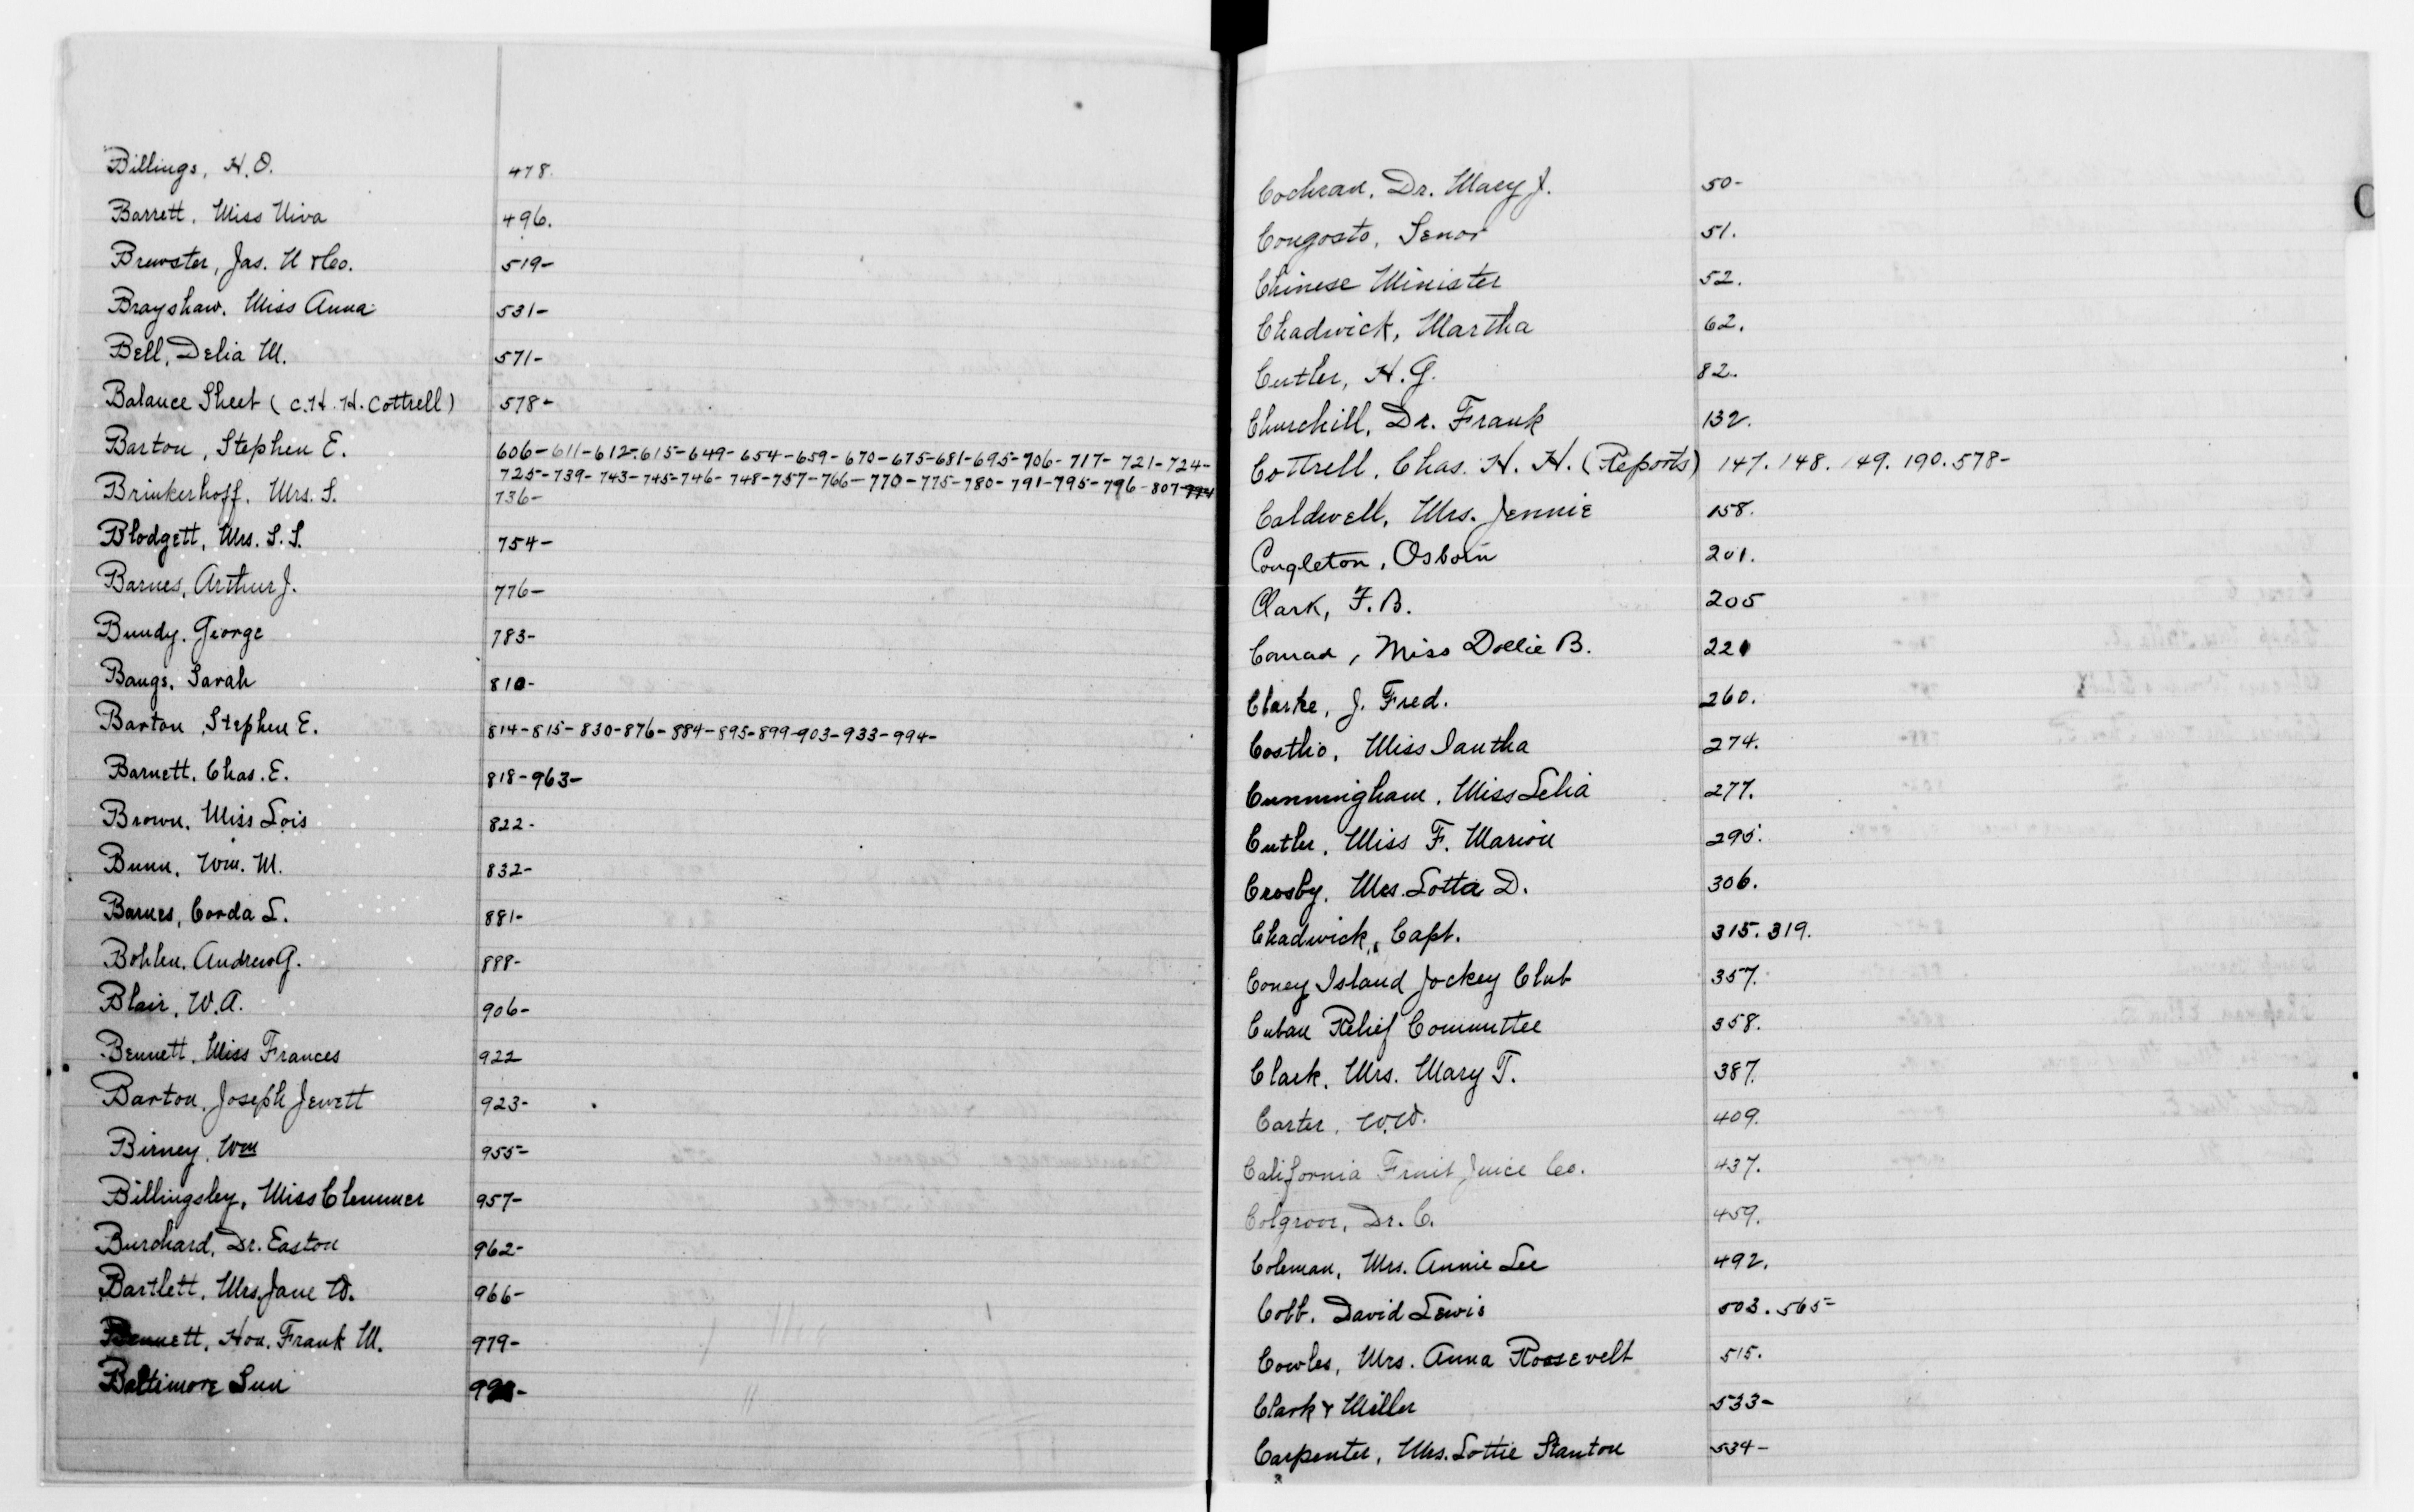 Billings, H.O. 478.
Barrett, Miss Viva 496.
Brewster, Jas. H & Co. 519-
Brayshaw, Miss Anna 531-
Bell, Delia M. 571-
Balance Sheet (C.H.H. Cottrell) 578-
Barton, Stephen E. 606-611-612-615-649-654-659-670-675-681-695-706-717-721-724-
725-739-743-745-746-748-757-766-770-775-780-791-795-796-807-994
Brinkerhoff, Mrs. S. 736-
Blodgett, Mrs. S.S. 754-
Barnes, Arthur J. 776-
Bundy, George 783-
Bangs, Sarah 810-
Barton, Stephen E. 814-815-830-876-884-895-899-903-933-994-
Barnett, Chas. E. 818-963-
Brown, Miss Lois 822-
Bunn, Wm. M. 832-
Barnes, Corda L. 881-
Bohlen, Andrew G. 888-
Blair, W.A. 906-
Bennett, Miss Frances 922
Barton, Joseph Jewett 923-
Birney, Wm 955-
Billingsley, Miss Clemmer 957-
Burchard, Dr. Easton 962-
Bartlett, Mrs. Jane W. 966-
Bennett, Hon. Frank M. 979-
Baltimore Sun
C
Cochran, Dr. Mary J. 50-
Congosto, Senor 51.
Chinese Minister 52.
Chadwick, Martha 62.
Cutler, H.G. 82.
Churchill, Dr. Frank 132.
Cottrell, Chas. H. H. (Reports) 147. 148. 149. 190. 578-
Caldwell, Mrs. Jennie 158.
Congleton, Osborn 201.
Clark, F.B. 205
Conrad, Miss Dollie B. 221
Clarke, J. Fred. 260.
Costhio, Miss Iantha 274.
Cunningham, Miss Lelia 277.
Cutler, Miss F. Marion 295.
Crosby, Mrs. Lotta D. 306.
Chadwick, Capt. 315. 319.
Coney Island Jockey Club 357.
Cuban Relief Committee 358.
Clark, Mrs. Mary T. 387.
Carter, W.W. 409.
California Fruit Juice Co. 437.
Colgrove, Dr. C. 459.
Coleman, Mrs. Annie Lee 492.
Cobb, David Lewis 503. 565-
Cowles, Mrs. Anna Roosevelt 515.
Clark & Miller 533-
Carpenter, Mrs. Lottie Stanton 534-